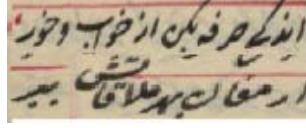 اندکی صرفه بکن از خواب و خور
ارمغان بهر ملاقاتش ببر